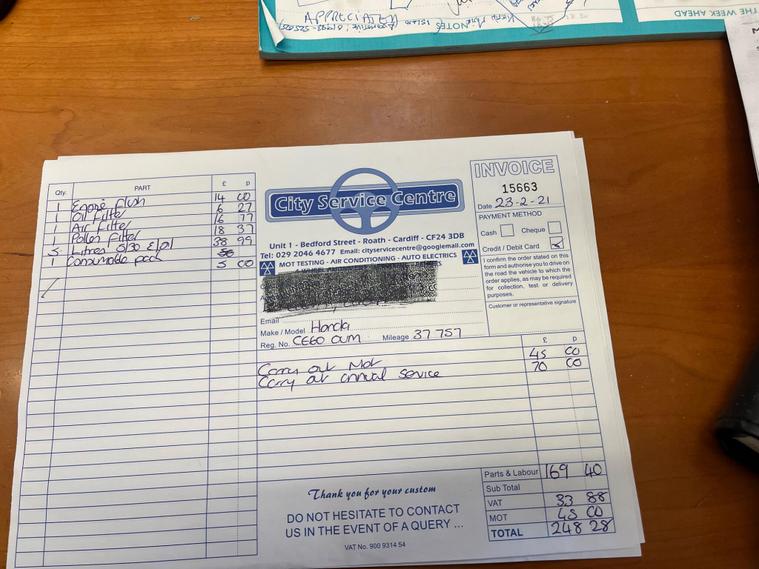 APPRECIATED
NOTES
THE WEEK AHEAD
City Service Centre
Unit 1 - Bedford Street - Roath - Cardiff - CF24 3DB
Tel: 029 2046 4677 Email: cityservicecentre@googlemail.com
MOT TESTING - AIR CONDITIONING - AUTO ELECTRICS
INVOICE
15663
Date 23-2-21
PAYMENT METHOD
Cash Cheque
Credit / Debit Card
I confirm the order stated on this
form and authorise you to drive on
the road the vehicle to which the
order applies, as may be required
for collection, test or delivery
purposes.
Customer or representative signature
Qty. PART £ p
1 Engine flush 14 00
1 Oil filter 6 27
1 Air filter 16 77
1 Pollen filter 18 37
5 Litres 5/30 E/oil 38 99
1 Consumable pack 5 00
Email
Make / Model Honda
Reg. No. CE60 OUM Mileage 37757
£ p
Carry out Mot 45 00
Carry out annual service 70 00
Thank you for your custom
DO NOT HESITATE TO CONTACT
US IN THE EVENT OF A QUERY ...
VAT No. 900 9314 54
Parts & Labour 169 40
Sub Total
VAT 33 88
MOT 45 00
TOTAL 248 28